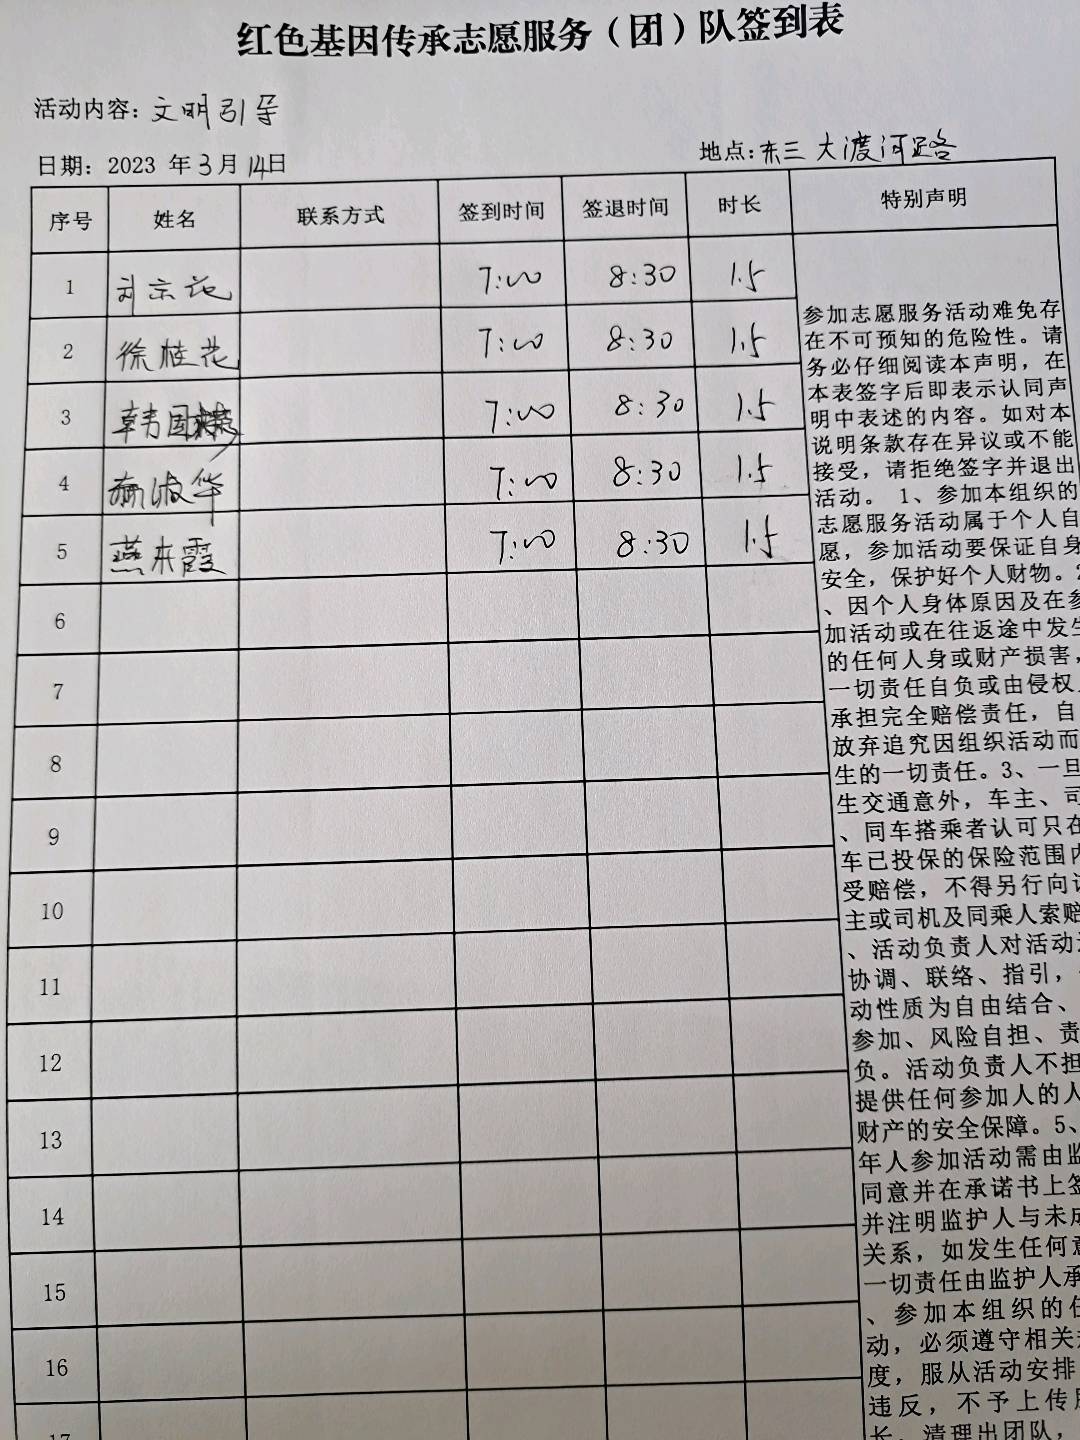 红色基因传承志愿服务（团）队签到表
活动内容：文明引导
日期：2023 年3月14日
地点：东三大渡河路
序号 姓名 联系方式 签到时间 签退时间 时长 特别声明
1 刘京花 7:00 8:30 1.5
2 徐桂花 7:00 8:30 1.5
3 韩国 7:00 8:30 1.5
4 淑华 7:00 8:30 1.5
5 燕来霞 7:00 8:30 1.5
6
7
8
9
10
11
12
13
14
15
16
17
参加志愿服务活动难免存
在不可预知的危险性。请
务必仔细阅读本声明，在
本表签字后即表示认同声
明中表述的内容。如对本
说明条款存在异议或不能
接受，请拒绝签字并退出
活动。 1、参加本组织的
志愿服务活动属于个人自
愿，参加活动要保证自身
安全，保护好个人财物。2
、因个人身体原因及在参
加活动或在往返途中发生
的任何人身或财产损害，
一切责任自负或由侵权
承担完全赔偿责任，自
放弃追究因组织活动而
生的一切责任。3、一旦
生交通意外，车主、司
、同车搭乘者认可只在
车已投保的保险范围内
受赔偿，不得另行向
主或司机及同乘人索赔
、活动负责人对活动
协调、联络、指引，
动性质为自由结合、
参加、风险自担、责
负。活动负责人不担
提供任何参加人的人
财产的安全保障。5、
年人参加活动需由监
同意并在承诺书上签
并注明监护人与未成
关系，如发生任何意
一切责任由监护人承
、参加本组织的任
动，必须遵守相关
度，服从活动安排
违反，不予上传
长，清理出团队，